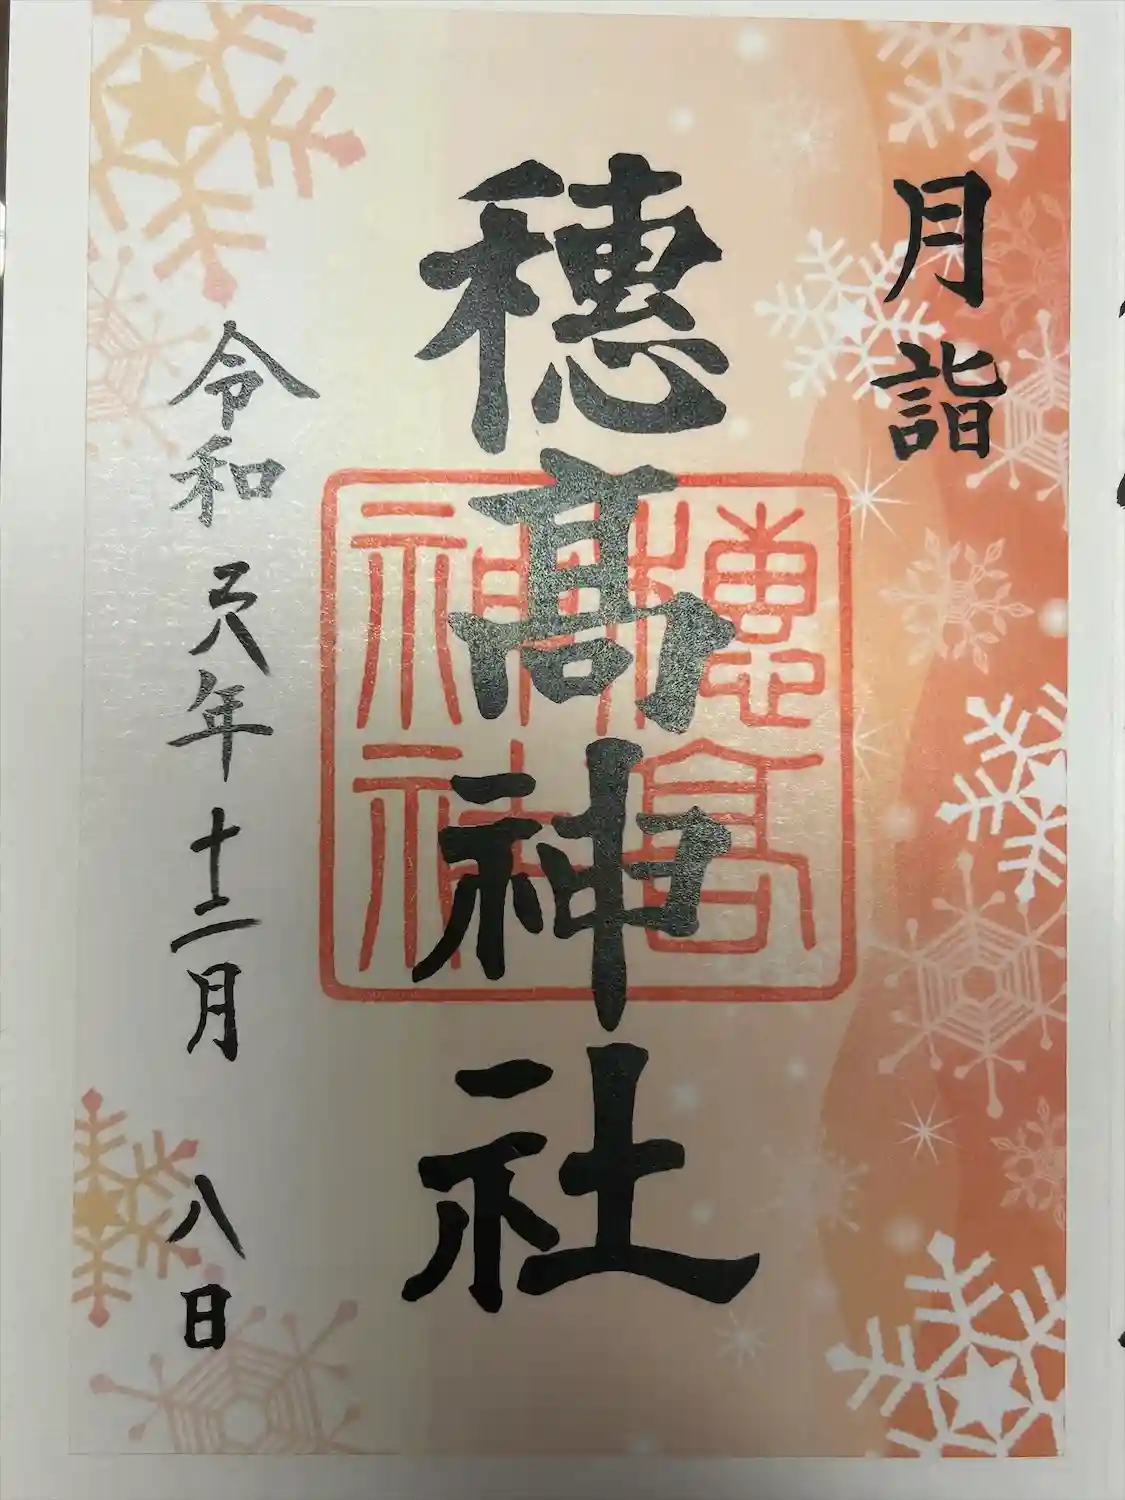 月詣
穂髙神社
穂高
神社
令和六年十二月 八日